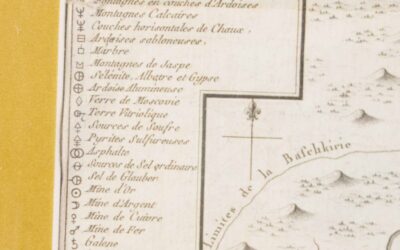 Montagnes en couches d'Ardoises
Montagnes Calcaires
Couches horisontales de Chaux
Ardoises sabloneuses
Marbre
Montagnes de Jaspe
Selenite, Albatre et Gypse
Ardoise Alumineuse
Verre de Moscovie
Terre Vitriolique
Sources de Soufre
Pyrites Sulfureuses
Asphalte
Sources de Sel ordinaire
Sel de Glauber
Mine d'Or
Mine d'Argent
Mine de Cuivre
Mine de Fer
Galene
Limites de la Baschkirie